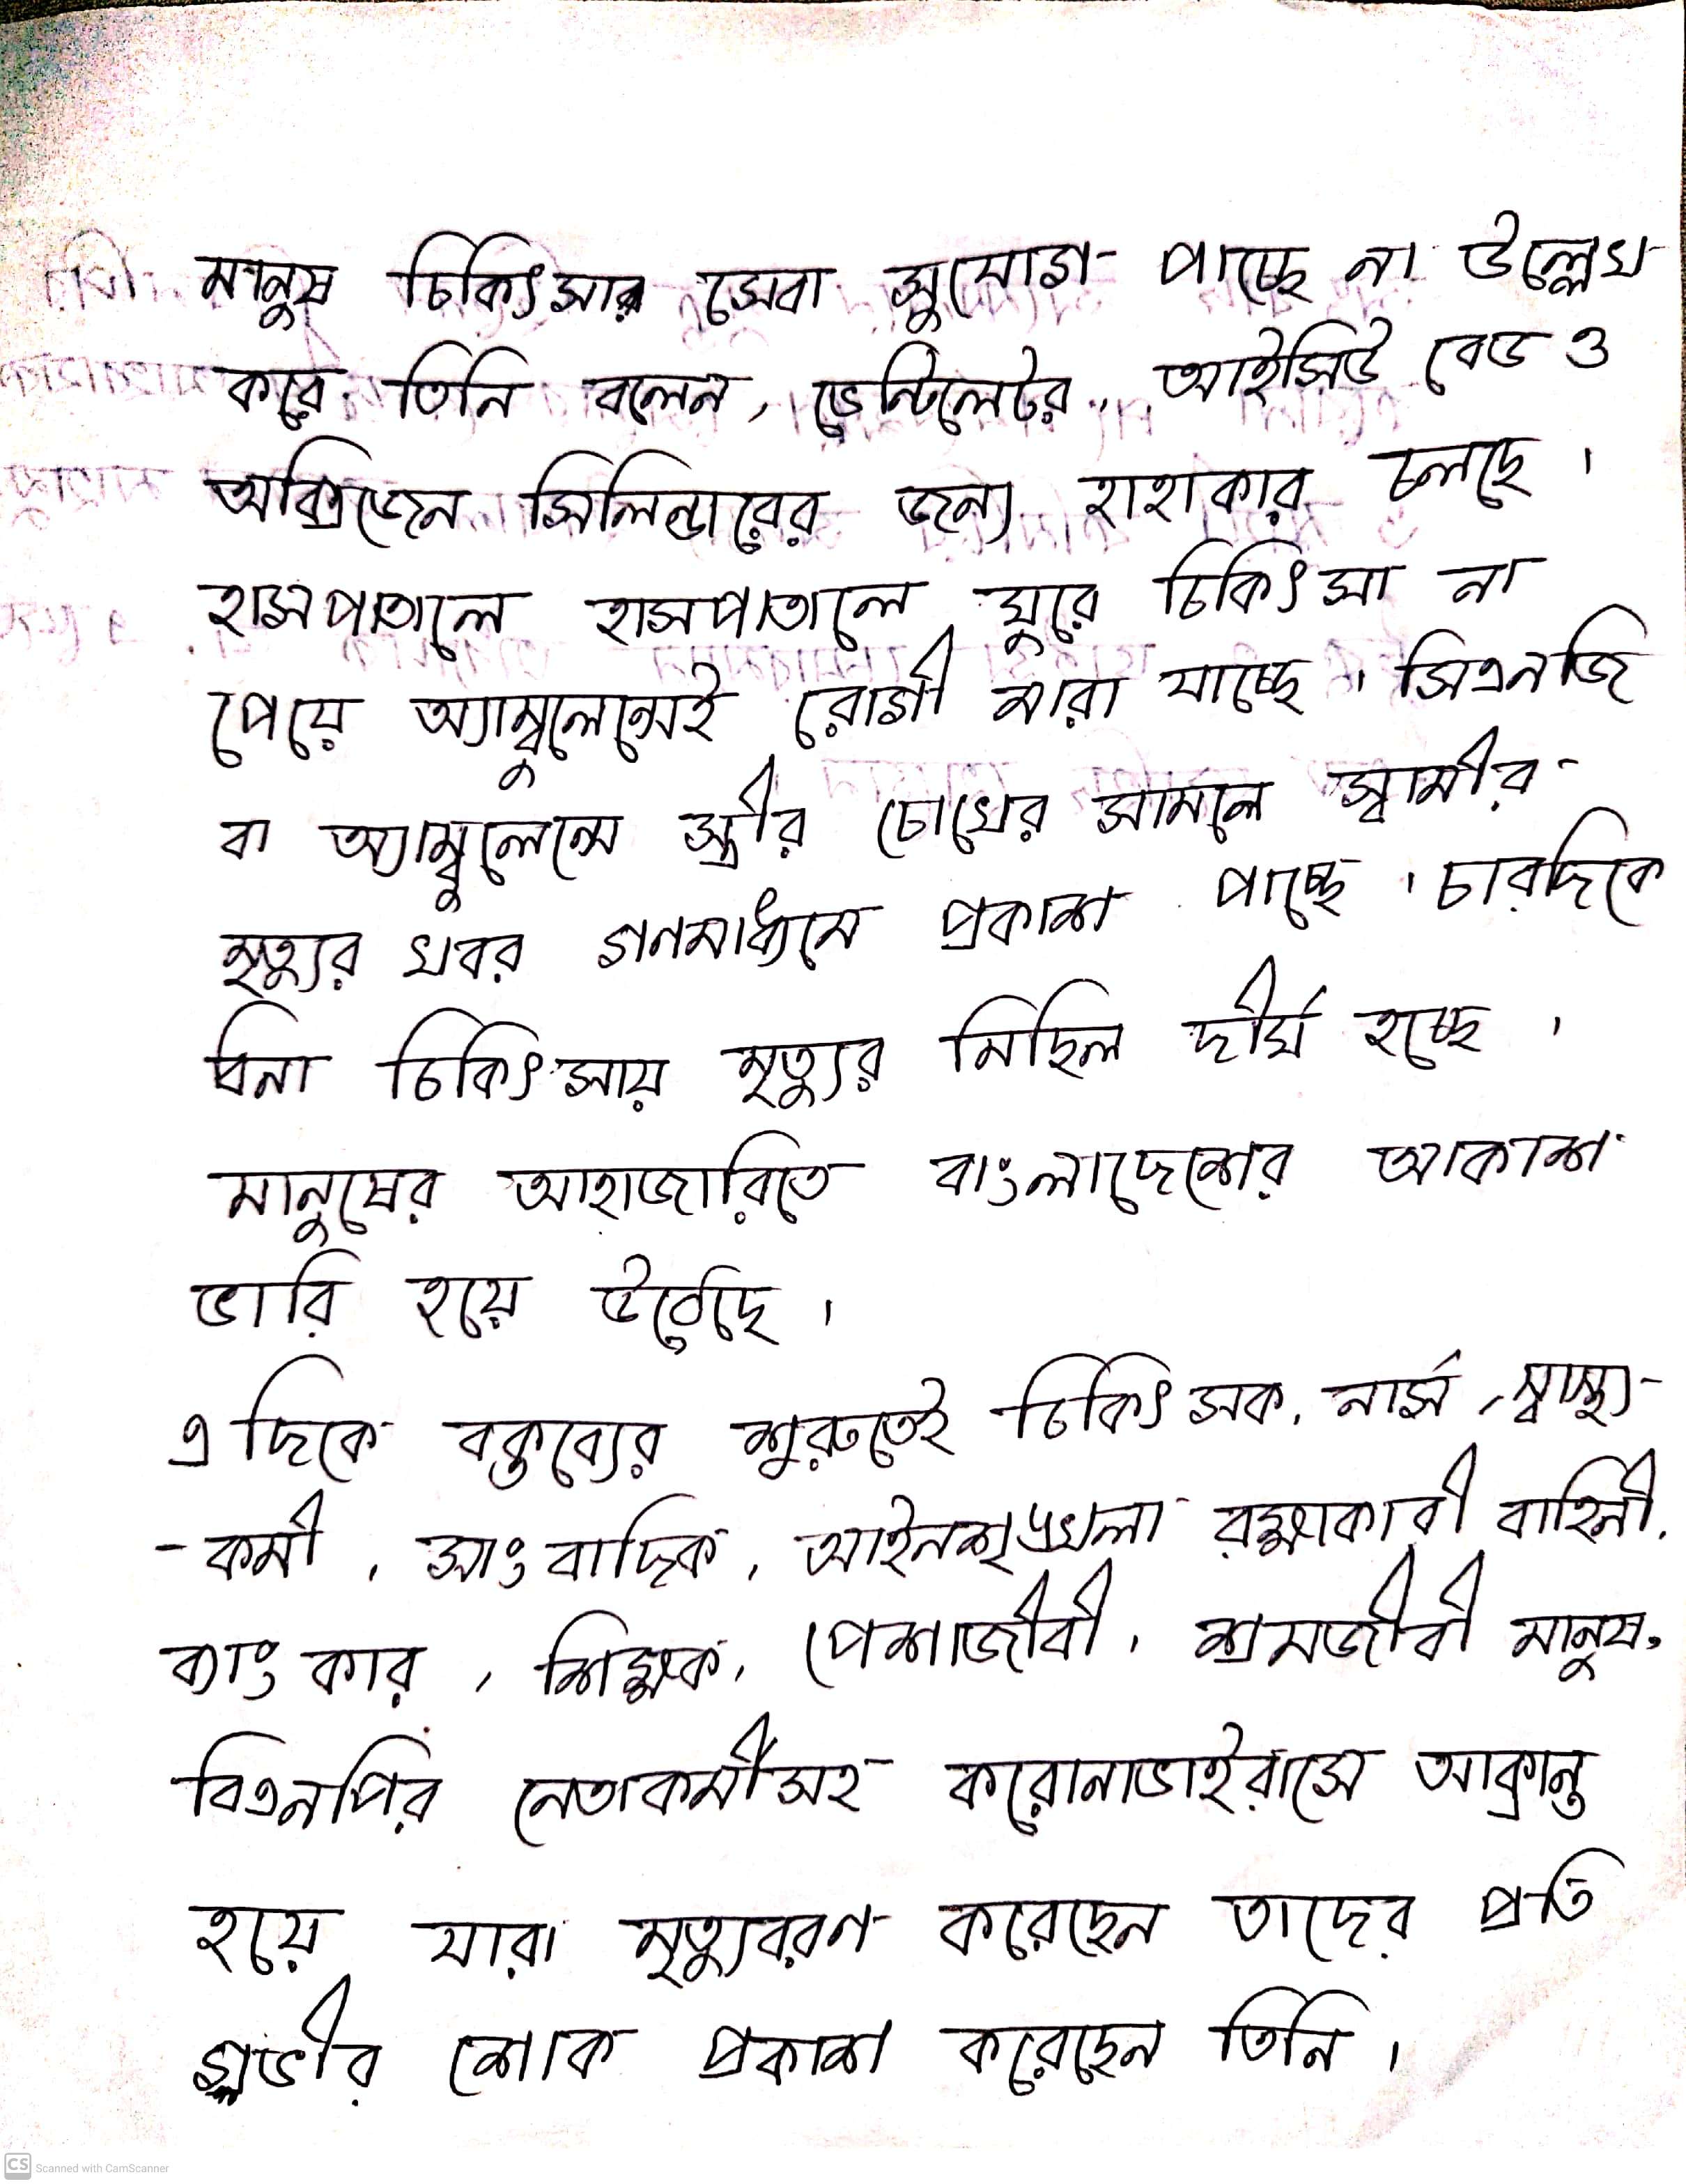 মানুষ চিকিৎসার সেবা সুযোগ পাচ্ছে না উল্লেখ
করে তিনি বলেন, ভেন্টিলেটর, আইসিউ বেড ও
অক্সিজেন সিলিন্ডারের জন্য হাহাকার চলছে।
হাসপাতালে হাসপাতালে ঘুরে চিকিৎসা না
পেয়ে অ্যাম্বুলেন্সেই রোগী মারা যাচ্ছে। সিএনজি
বা অ্যাম্বুলেন্সে স্ত্রীর চোখের সামনে স্বামীর
মৃত্যুর খবর গনমাধ্যমে প্রকাশ পাচ্ছে। চারদিকে
বিনা চিকিৎসায় মৃত্যুর মিছিল দীর্ঘ হচ্ছে।
মানুষের আহাজারিতে বাংলাদেশের আকাশ
ভারি হয়ে উঠেছে।
এ দিকে বক্তব্যের শুরুতেই চিকিৎসক, নার্স, স্বাস্থ্য-
-কর্মী, সাংবাদিক, আইনশৃঙ্খলা রক্ষাকারী বাহিনী,
ব্যাংকার, শিক্ষক, পেশাজীবী, শ্রমজীবী মানুষ,
বিএনপির নেতাকর্মীসহ করোনাভাইরাসে আক্রান্ত
হয়ে যারা মৃত্যুবরণ করেছেন তাদের প্রতি
গভীর শোক প্রকাশ করেছেন তিনি।
CS Scanned with CamScanner